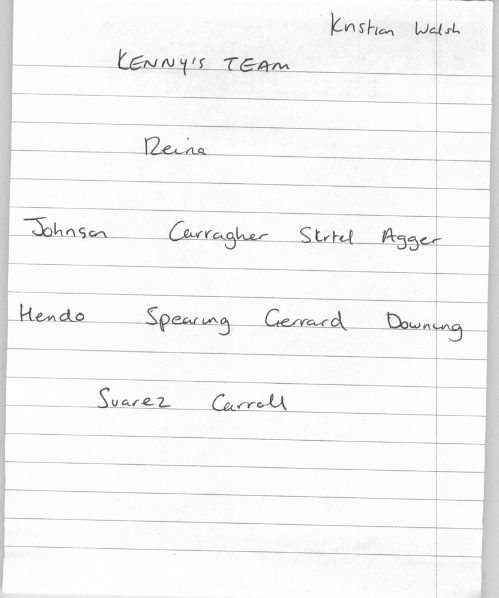 Kristian Walsh
KENNY'S TEAM
Reina
Johnson Carragher Skrtel Agger
Hendo Spearing Gerrard Downing
Suarez Carroll